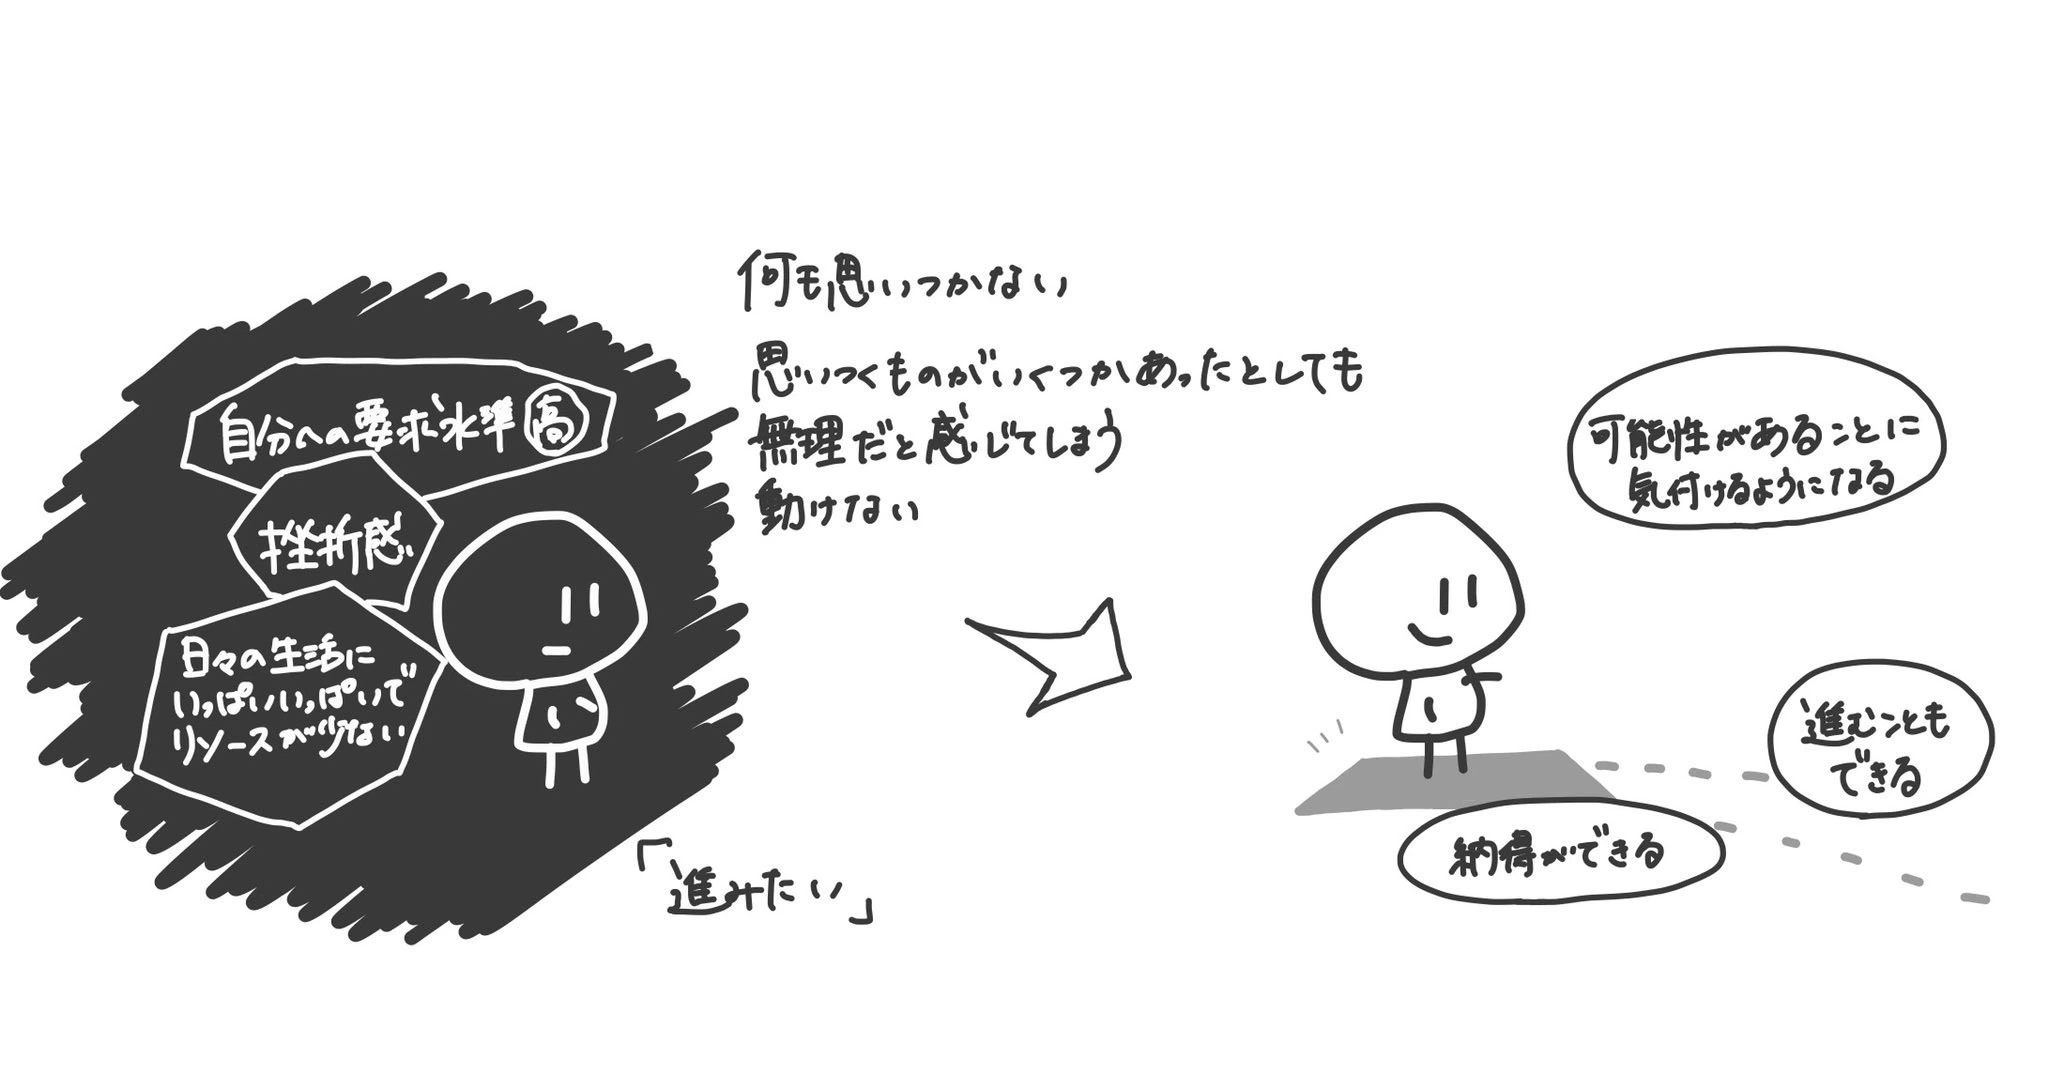 自分への要求水準高
挫折感
日々の生活に
いっぱいいっぱいで
リソースが少ない
何も思いつかない
思いつくものがいくつかあったとしても
無理だと感じてしまう
動けない
「進みたい」
可能性があることに
気付けるようになる
進むことも
できる
納得ができる